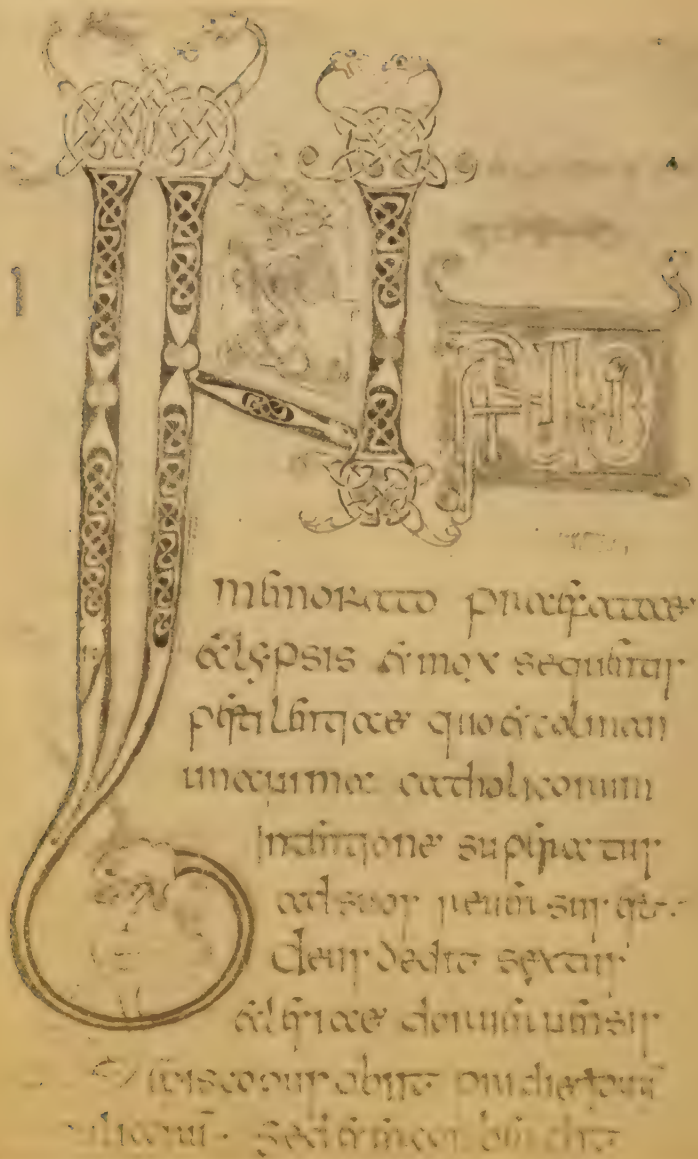 IN
memorato praefatae
eclypsis et mox sequentis
pestilentiae quo et colman
unanima catholicorum
intentione superatus
ad suos reuersus est
deus dedit sextus
episcopus obiit pridie
sed et erconberct